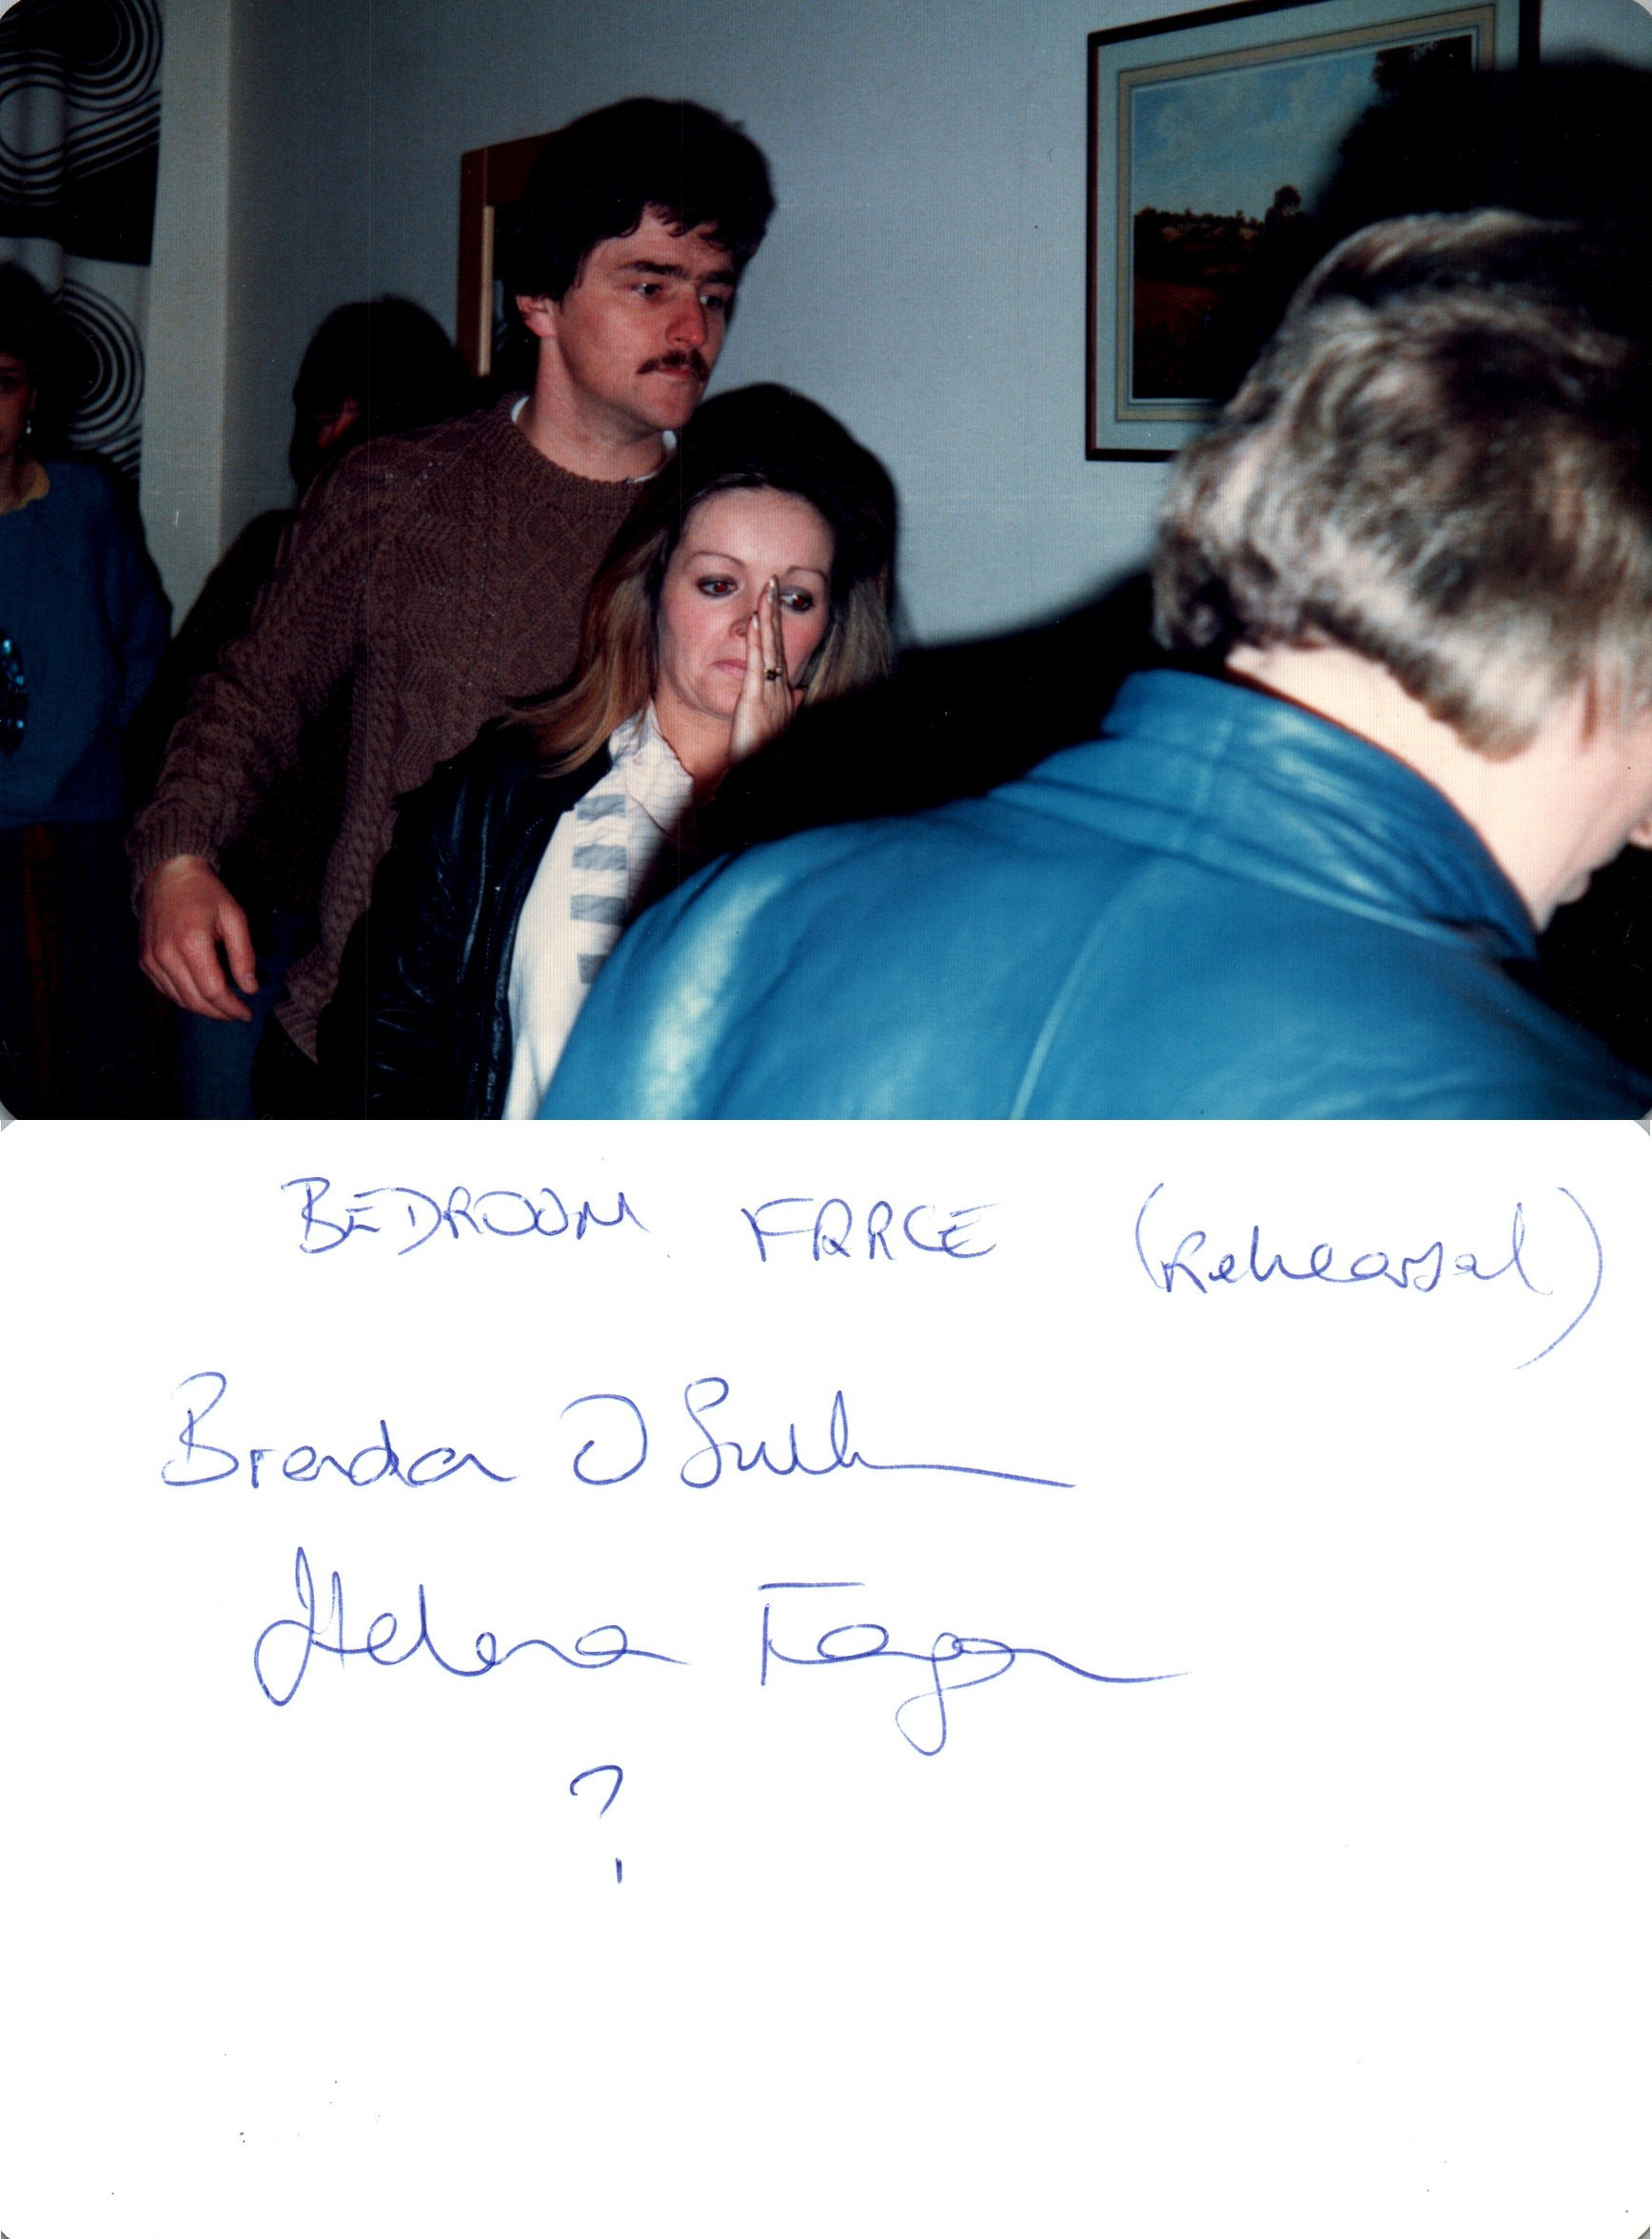 BEDROOM FARCE (Rehearsal)
Brendan O
Helena Fagan
?